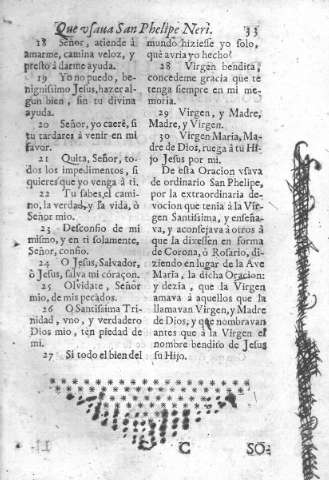 Que vsaua San Phelipe Neri. 33
18 Señor, atiende á
amarme, camina veloz, y
presto á darme ayuda.
19 Yo no puedo, be-
nignissimo Jesus, hazer al-
gun bien, sin tu divina
ayuda.
20 Señor, yo caerè, si
tu tardares à venir en mi
favor.
21 Quita, Señor, to-
dos los impedimentos, si
quieres que yo venga â ti.
22 Tu sabes, el cami-
no, la verdad, y la vida, ò
Señor mio.
23 Desconfio de mi
mismo, y en ti solamente,
Señor, confio.
24 O Jesus, Salvador,
ò Jesus, salva mi córaçon.
25 Olvidate, Señor
mio, de mis pecados.
26 O Santissima Tri-
nidad, vno, y verdadero
Dios mio, ten piedad de
mi.
27 Si todo el bien del
mundo hiziesse yo solo,
què avria yo hecho?
28 Virgen bendita,
concedeme gracia que te
tenga siempre en mi me-
moria.
29 Virgen, y Madre,
Madre, y Virgen.
30 Virgen Maria, Ma-
dre de Dios, ruega à tu Hi-
jo Jesus por mi.
De esta Oracion vsava
de ordinario San Phelipe,
por la extraordinaria de-
vocion que tenia à la Vir-
gen Santissima, y enseña-
va, y aconsejava à otros â
que la dixessen en forma
de Corona, ò Rosario, di-
ziendo en lugar de la Ave
Maria, la dicha Oracion:
y dezia, que la Virgen
amava à aquellos que la
llamavan Virgen, y Madre
de Dios, y que nombravan
antes que à la Virgen el
nombre bendito de Jesus
su Hijo.
C SO-